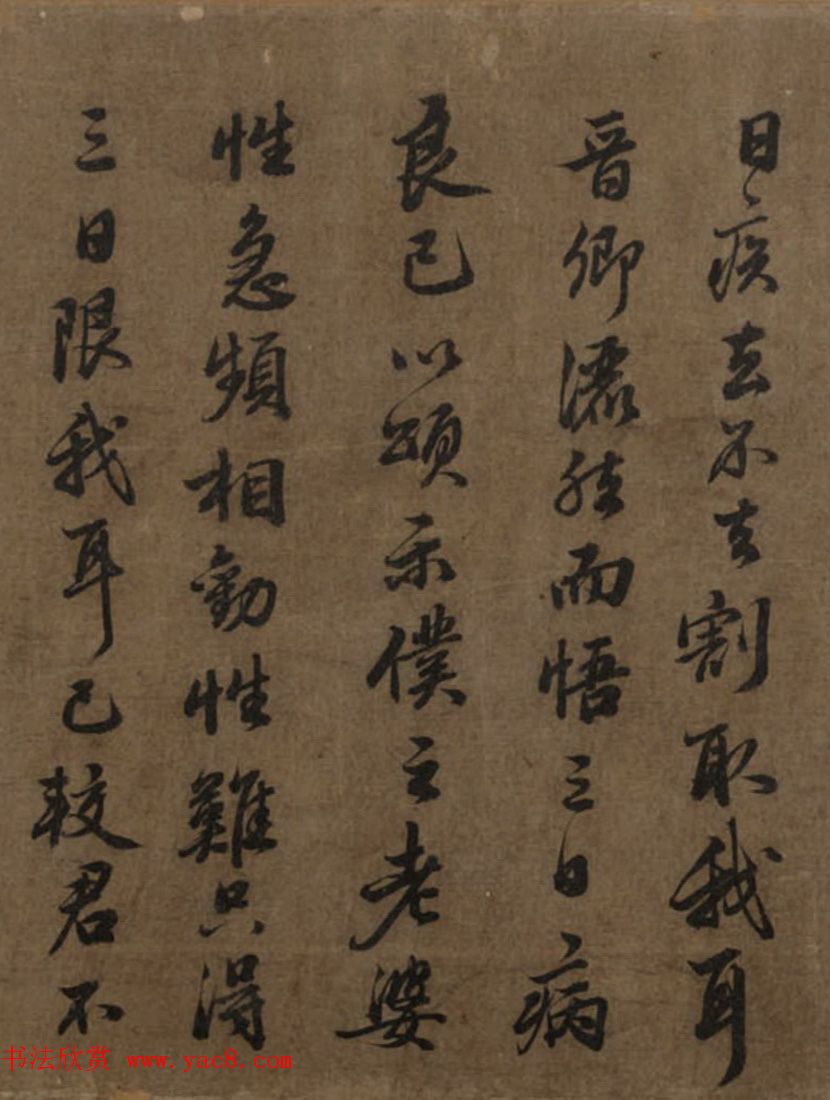 日疾去不去割取我耳
晋卿灑然而悟三日病
良已以頌示僕云老婆
性急頻相勸性難只得
三日限我耳已較君不
书法欣赏 www.yac8.com